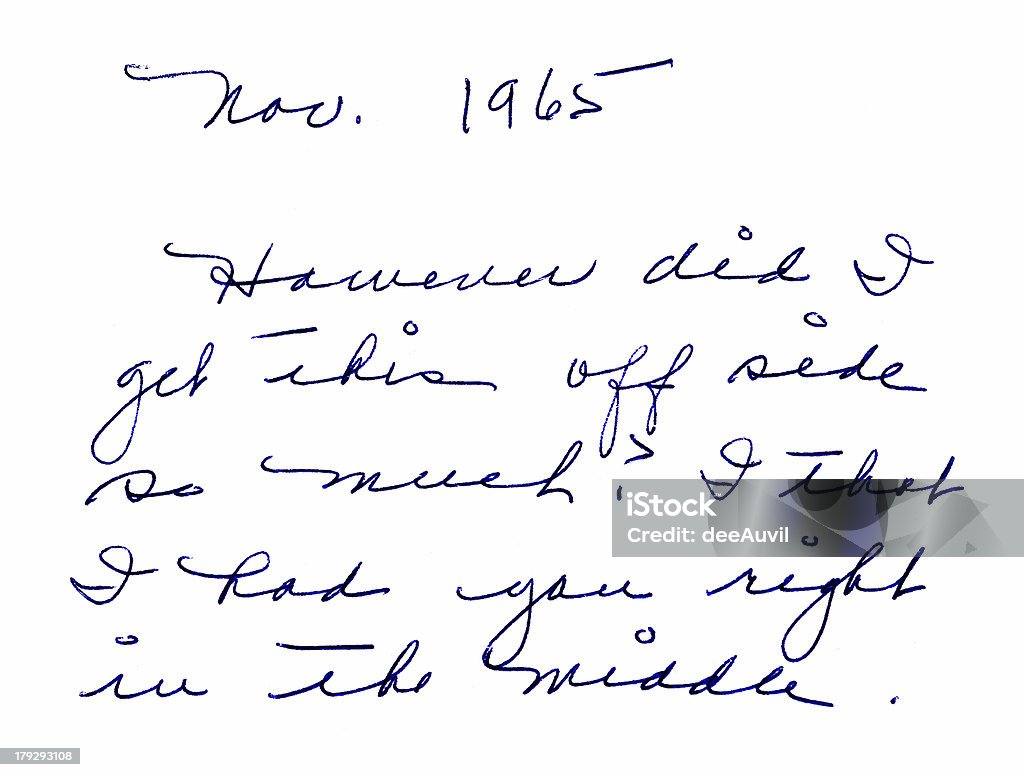 Nov. 1965
However did I
get this off side
so much? I that
I had you right
in the middle.
iStock
Credit: deeAuvil
179293108